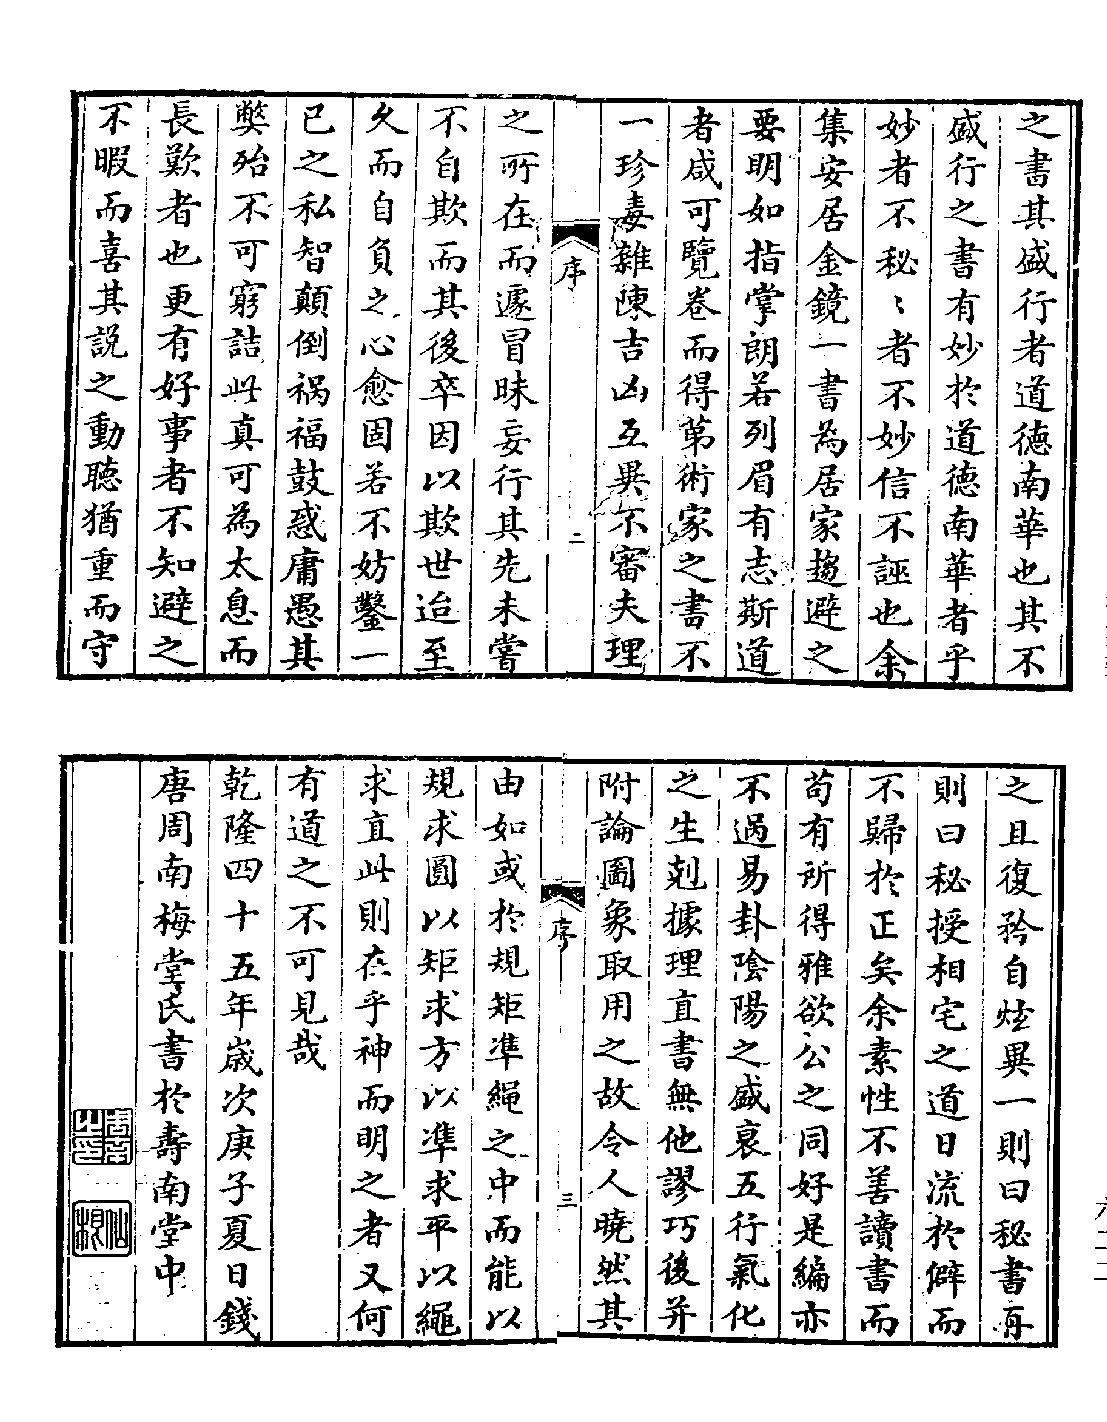 之書其盛行者道德南華也其不
盛行之書有妙於道德南華者乎
妙者不秘〻者不妙信不誣也余
集安居金鏡一書為居家趨避之
要明如指掌朗若列眉有志斯道
者咸可覽卷而得第術家之書不
一珍毒雜陳吉凶互異不審夫理
序
二
之所在而遽冒昧妄行其先未嘗
不自欺而其後卒因以欺世迨至
久而自負之心愈固若不妨鑿一
已之私智顛倒禍福鼓惑庸愚其
弊殆不可窮詰此真可為太息而
長歎者也更有好事者不知避之
不暇而喜其説之動聽猶重而守
之且復矜自炫異一則曰秘書再
則曰秘授相宅之道日流於僻而
不歸於正矣余素性不善讀書而
苟有所得雅欲公之同好是編亦
不過易卦陰陽之盛衰五行氣化
之生剋據理直書無他謬巧後并
附論圖象取用之故令人曉然其
序
三
由如或於規矩凖繩之中而能以
規求圓以矩求方以凖求平以繩
求直此則在乎神而明之者又何
有道之不可見哉
乾隆四十五年歲次庚子夏日錢
唐周南梅堂氏書於壽南堂中